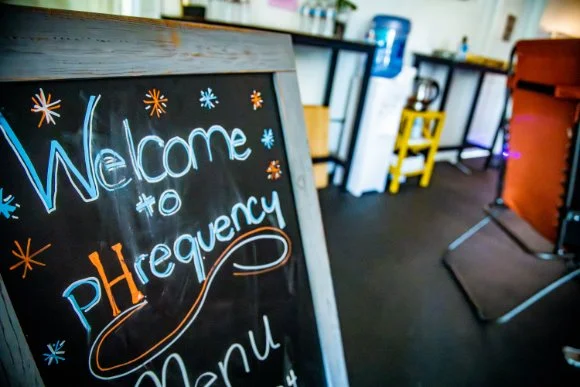 Welcome
to
pHrequency
Menu